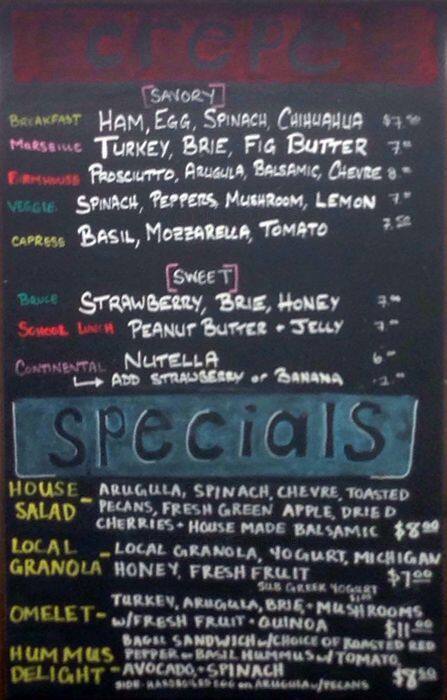 crepe
[SAVORY]
BREAKFAST HAM, EGG, SPINACH, CHIHUAHUA $7.50
MARSEILLE TURKEY, BRIE, FIG BUTTER 7.00
FARMHOUSE PROSCIUTTO, ARUGULA, BALSAMIC, CHEVRE 8.00
VEGGIE SPINACH, PEPPERS, MUSHROOM, LEMON 7.00
CAPRESE BASIL, MOZZARELLA, TOMATO 7.50
[SWEET]
STRAWBERRY, BRIE, HONEY 7.00
SCHOOL LUNCH PEANUT BUTTER + JELLY 7.00
CONTINENTAL NUTELLA 6.00
ADD STRAWBERRY or BANANA
specials
HOUSE SALAD - ARUGULA, SPINACH, CHEVRE, TOASTED
PECANS, FRESH GREEN APPLE, DRIED
CHERRIES + HOUSE MADE BALSAMIC $8.00
LOCAL GRANOLA - LOCAL GRANOLA, YOGURT, MICHIGAN
HONEY, FRESH FRUIT $7.00
SUB GREEK YOGURT
OMELET - TURKEY, ARUGULA, BRIE + MUSHROOMS
w/FRESH FRUIT + QUINOA $11.00
HUMMUS DELIGHT - BAGEL SANDWICH w/CHOICE OF ROASTED RED
PEPPER or BASIL HUMMUS w/TOMATO,
AVOCADO + SPINACH $8.50
SIDE HARDBOILED EGG on ARUGULA w/PECANS